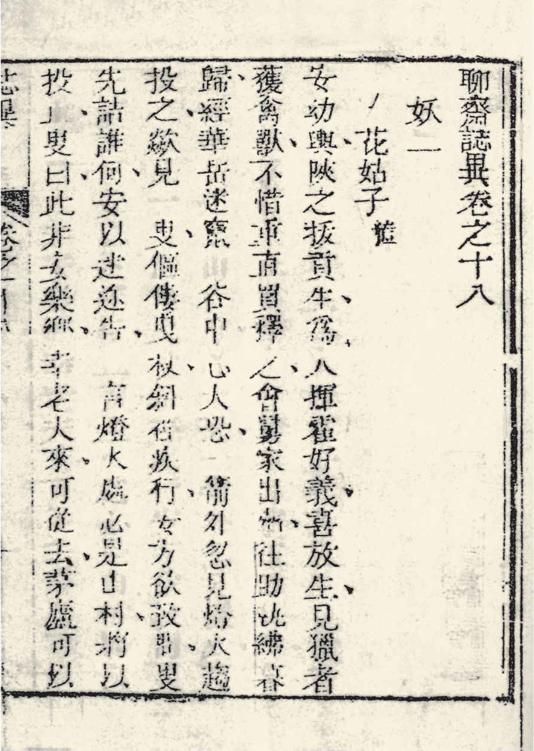 聊齋誌異卷之十八
妖一
花姑子 獐
安幼輿陝之拔貢生爲人揮霍好義喜放生見獵者
獲禽獸不惜重直買釋之會舅家出葬往助執紼暮
歸經華岳迷竄山谷中心大恐一箭外忽見燈火趨
投之歘見一叟傴僂曳杖斜徑疾行安方欲致問叟
先詰誰何安以迷途告 言燈火處必是山村將以
投止叟曰此非安樂鄉幸老夫來可從去茅廬可以